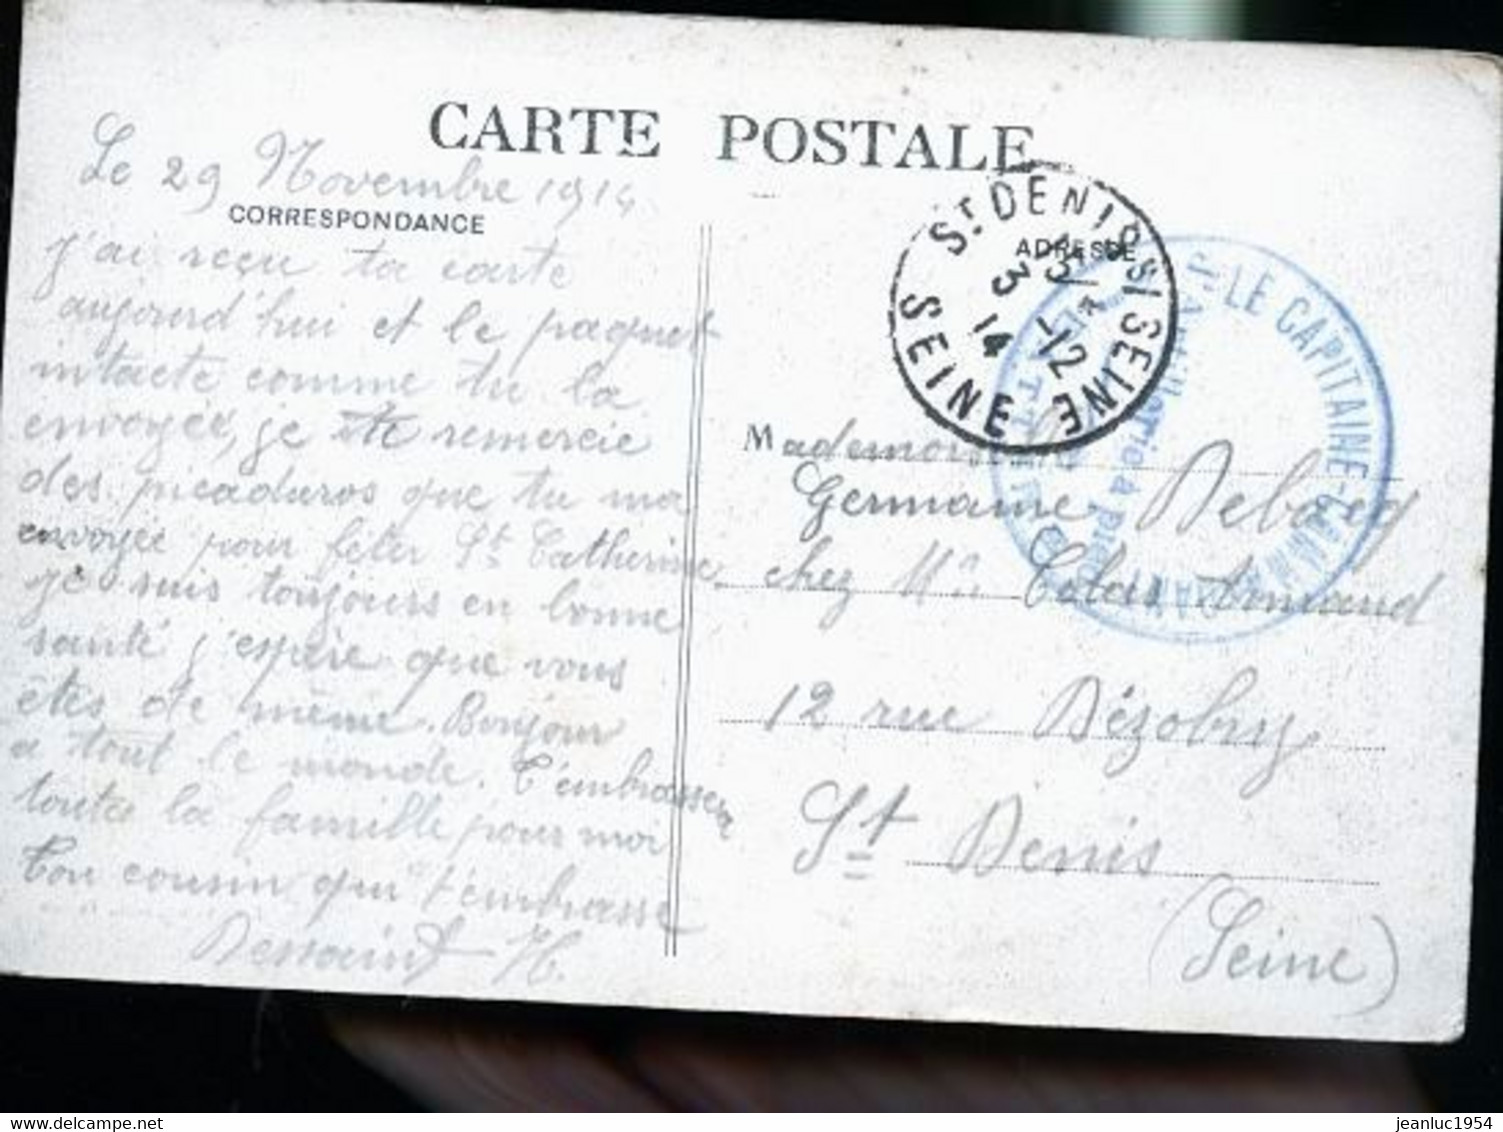 CARTE POSTALE
Le 29 Novembre 1914
CORRESPONDANCE
j'ai reçu ta carte
aujourd'hui et le paquet
intacte comme tu la
envoyée, je te remercie
des picaduros que tu ma
envoyée pour fêter St Catherine
je suis toujours en bonne
santé j'espère que vous
êtes de même. Bonjour
a tout le monde. T'embrasser
toute la famille pour moi
Ton cousin qui t'embrasse
Dessaint H.
ADRESSE
St DENIS S/SEINE
3 -12
14
SEINE
LE CAPITAINE-COMMANDANT
Artillerie à pied
BATTERIE
Mademoiselle
Germaine
chez Mr Colas Armand
12 rue Dézobry
St Denis
(Seine)
delcampe.net
jeanluc1954